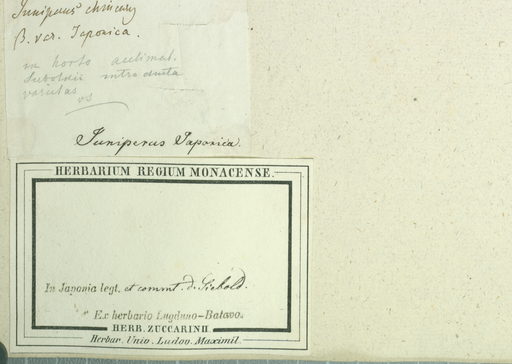 Juniperus chinens
β. var. Japonica.
in horto acclimat.
introducta
varietas
Juniperus Japonica.
HERBARIUM REGIUM MONACENSE.
In Japonia legt. et commt. d. Siebold.
Ex herbario Lugduno-Batavo.
HERB. ZUCCARINII.
Herbar. Univ. Ludov. Maximil.